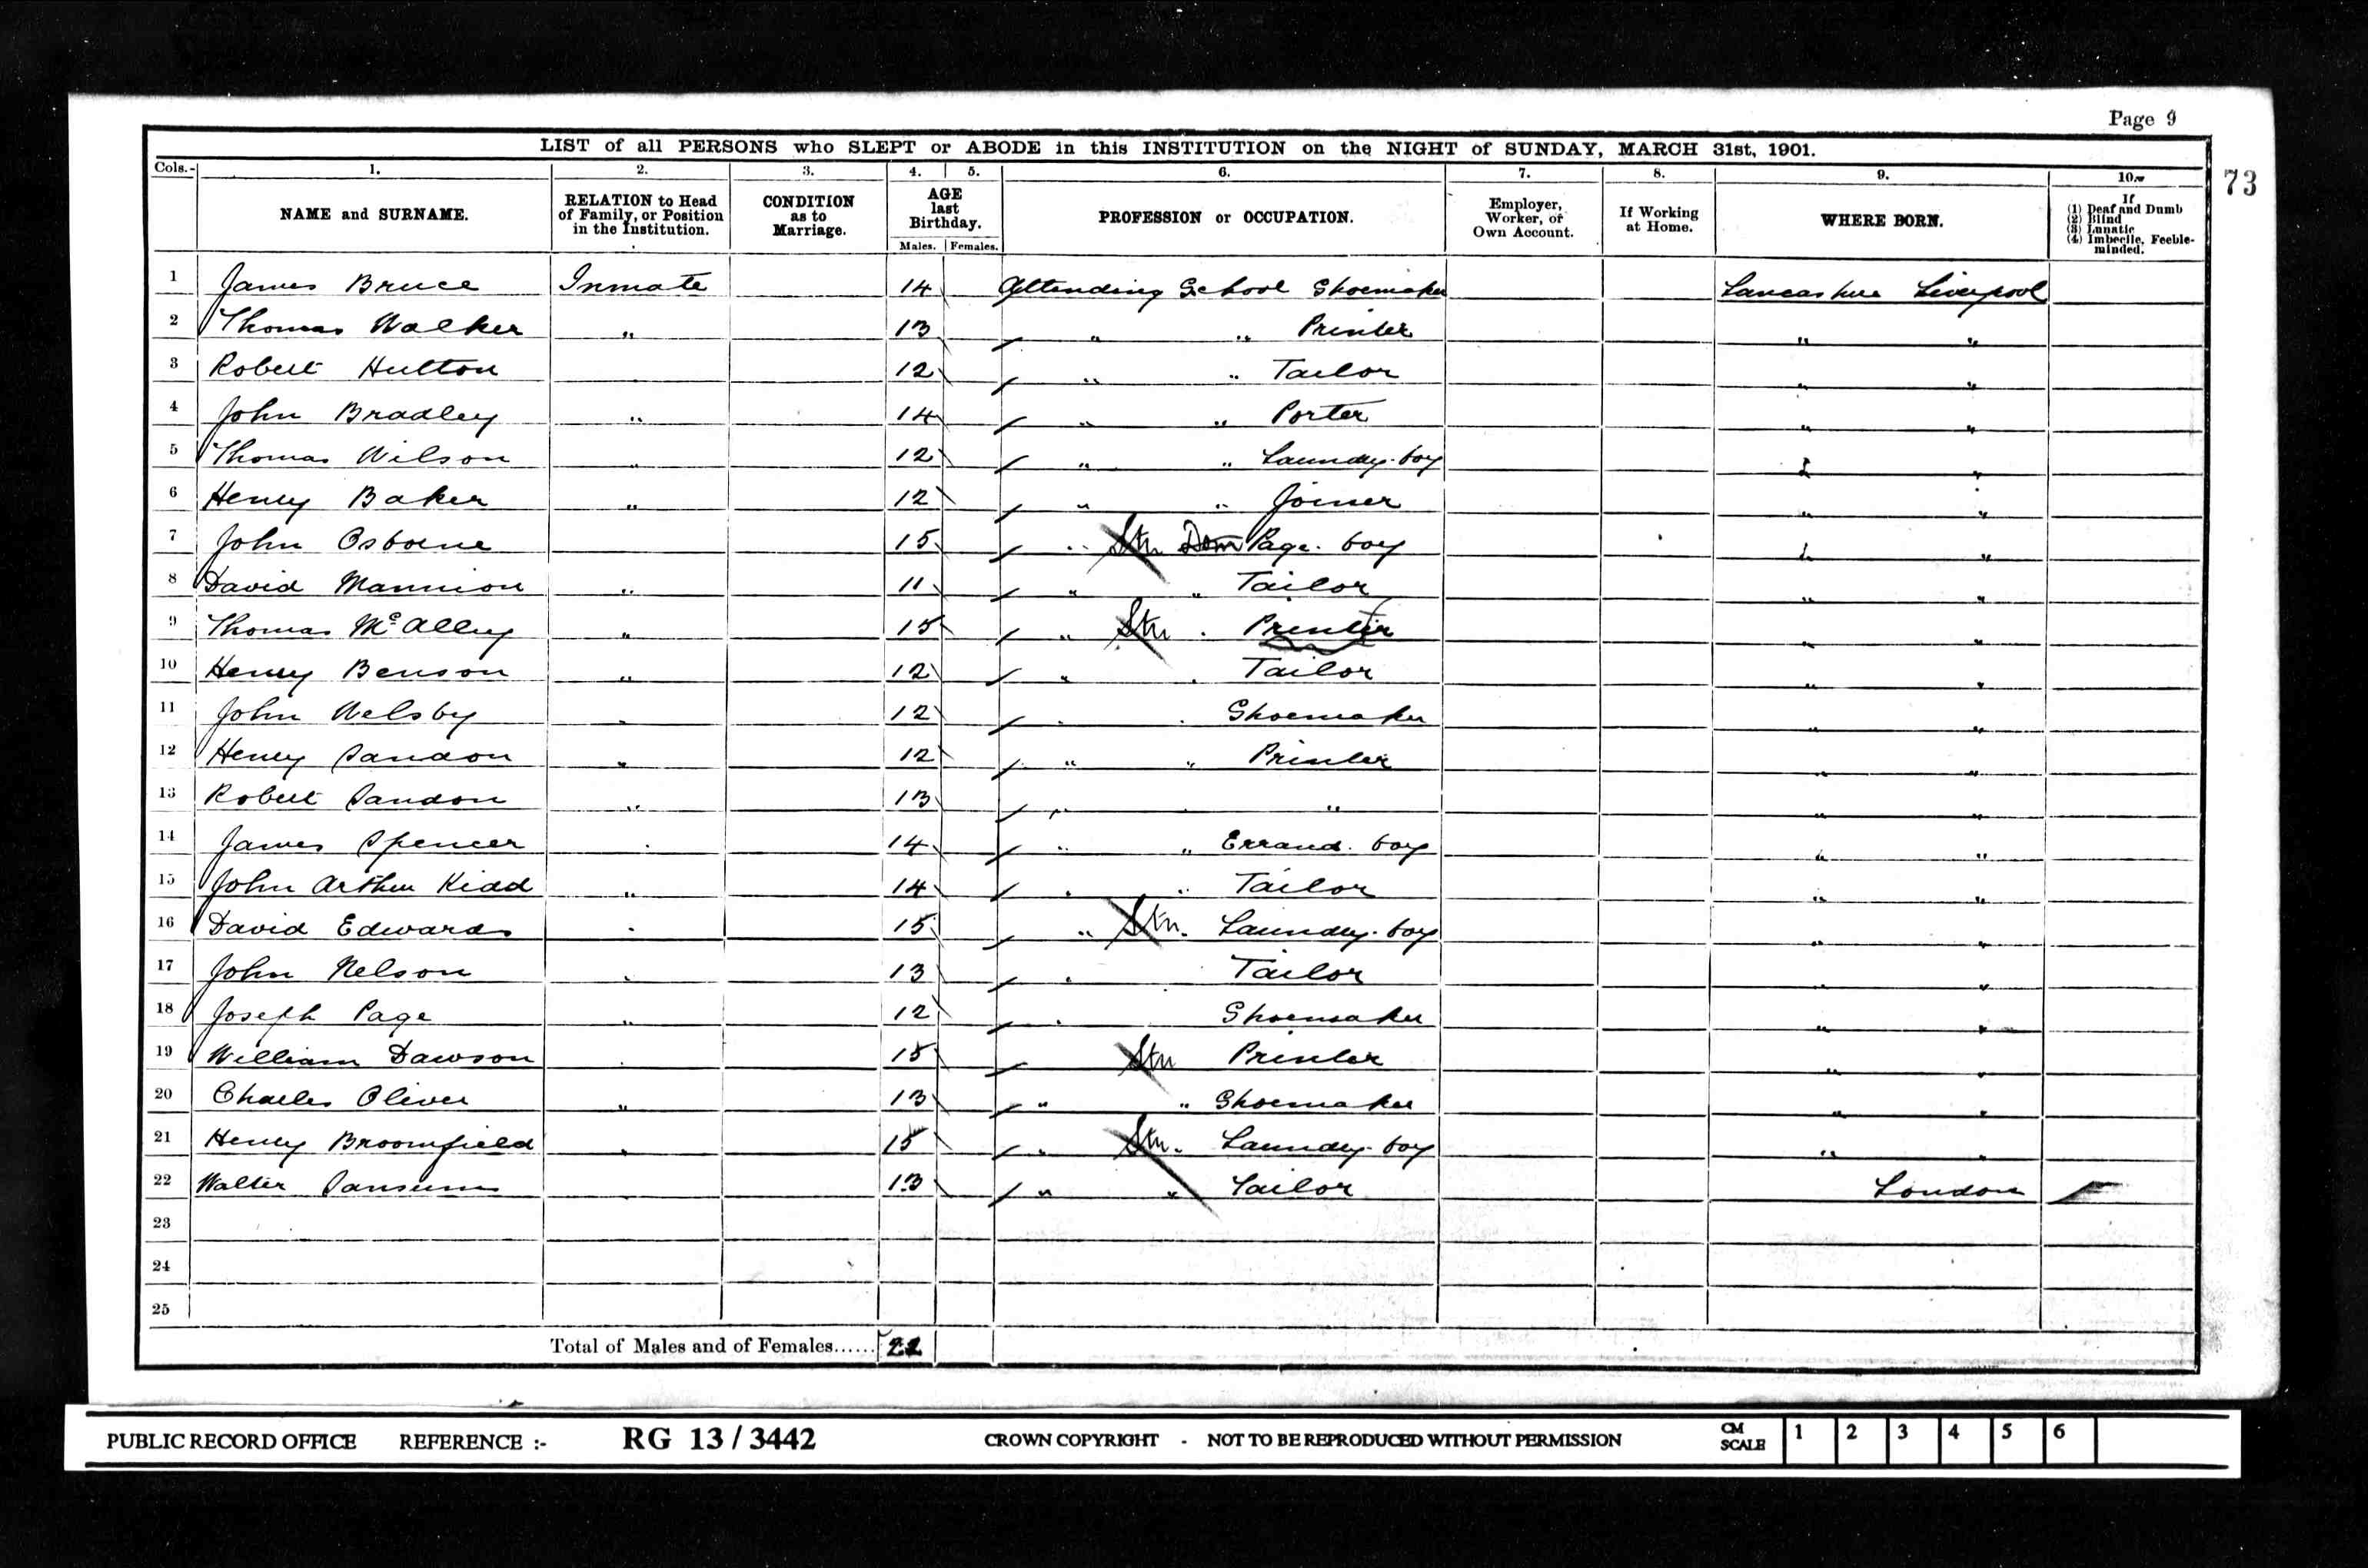 Page 9
73
LIST of all PERSONS who SLEPT or ABODE in this INSTITUTION on the NIGHT of SUNDAY, MARCH 31st, 1901.
Cols.- 1. 2. 3. 4. 5. 6. 7. 8. 9. 10.
NAME and SURNAME. RELATION to Head of Family, or Position in the Institution. CONDITION as to Marriage. AGE last Birthday. Males. Females. PROFESSION or OCCUPATION. Employer, Worker, or Own Account. If Working at Home. WHERE BORN. If (1) Deaf and Dumb (2) Blind (3) Lunatic (4) Imbecile, Feeble-minded.
1 James Bruce Inmate 14 Attending School Shoemaker Lancashire Liverpool
2 Thomas Walker " 13 " " Printer " "
3 Robert Hulton 12 " " Tailor " "
4 John Bradley " 14 " " Porter " "
5 Thomas Wilson " 12 " " Laundry-boy " "
6 Henry Baker " 12 " " Joiner " "
7 John Osborne 15 " Stu Dom Page-boy " "
8 David Mannion " 11 " " Tailor " "
9 Thomas McAlley " 15 " Stu " Printer " "
10 Henry Benson " 12 " " Tailor " "
11 John Welsby " 12 " " Shoemaker " "
12 Henry Sandon " 12 " " Printer " "
13 Robert Sandon " 13 " " " " "
14 James Spencer " 14 " " Errand-boy " "
15 John Arthur Kidd " 14 " " Tailor " "
16 David Edwards " 15 " Stu. Laundry-boy " "
17 John Nelson " 13 " " Tailor " "
18 Joseph Page " 12 " Shoemaker " "
19 William Dawson " 15 Stu Printer " "
20 Charles Oliver " 13 " " Shoemaker " "
21 Henry Broomfield " 15 " Stu. Laundry-boy " "
22 Walter Sansum " 13 " " Tailor London
23
24
25
Total of Males and of Females...... 22
PUBLIC RECORD OFFICE REFERENCE :- RG 13 / 3442 CROWN COPYRIGHT - NOT TO BE REPRODUCED WITHOUT PERMISSION CM SCALE 1 2 3 4 5 6